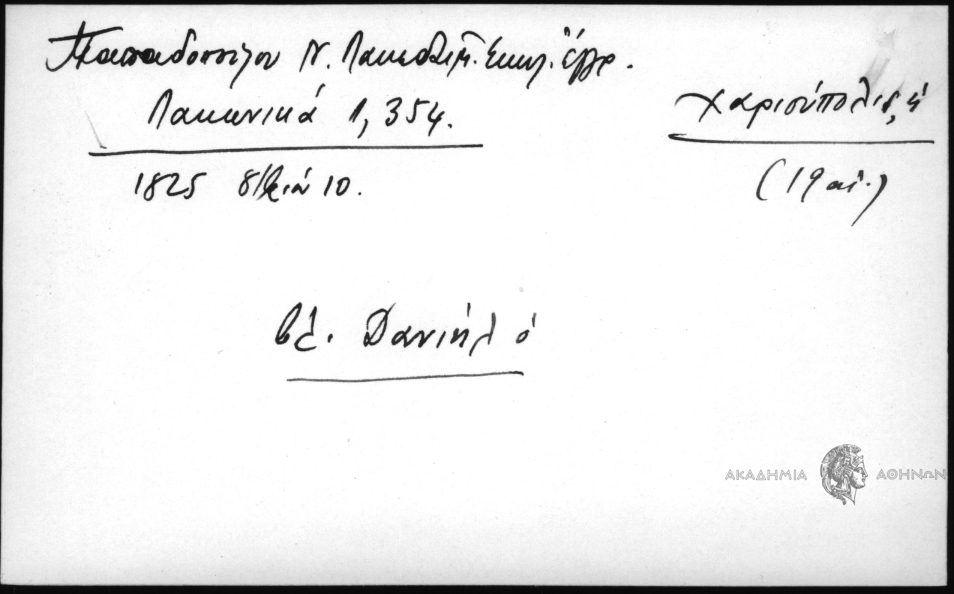 Παπαδοπούλου Ν. Λακεδαιμ. Εκκλ. Έγγρ.
Λακωνικά 1, 354.
Χαριούπολις, ἡ
1825 8/βρίου 10.
(19 αἰ.)
βλ. Δανιήλ ὁ
ΑΚΑΔΗΜΙΑ ΑΘΗΝΩΝ